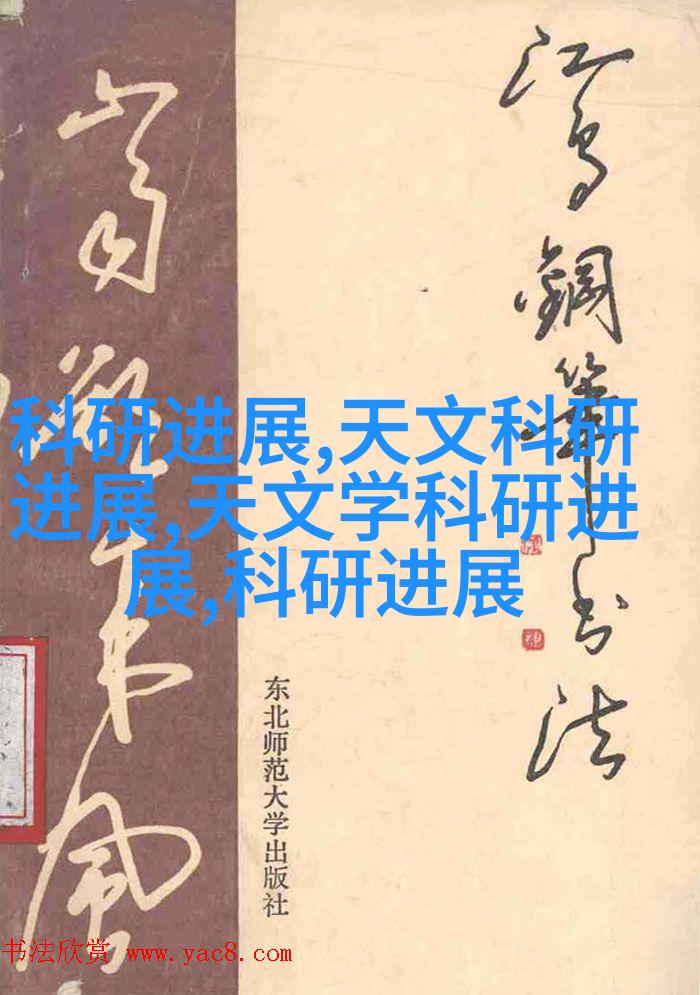 江鸟鋼筆书法
科研进展,天文科研
进展,天文学科研进
展,科研进展
东北师范大学出版社
书法欣赏 www.yac8.com